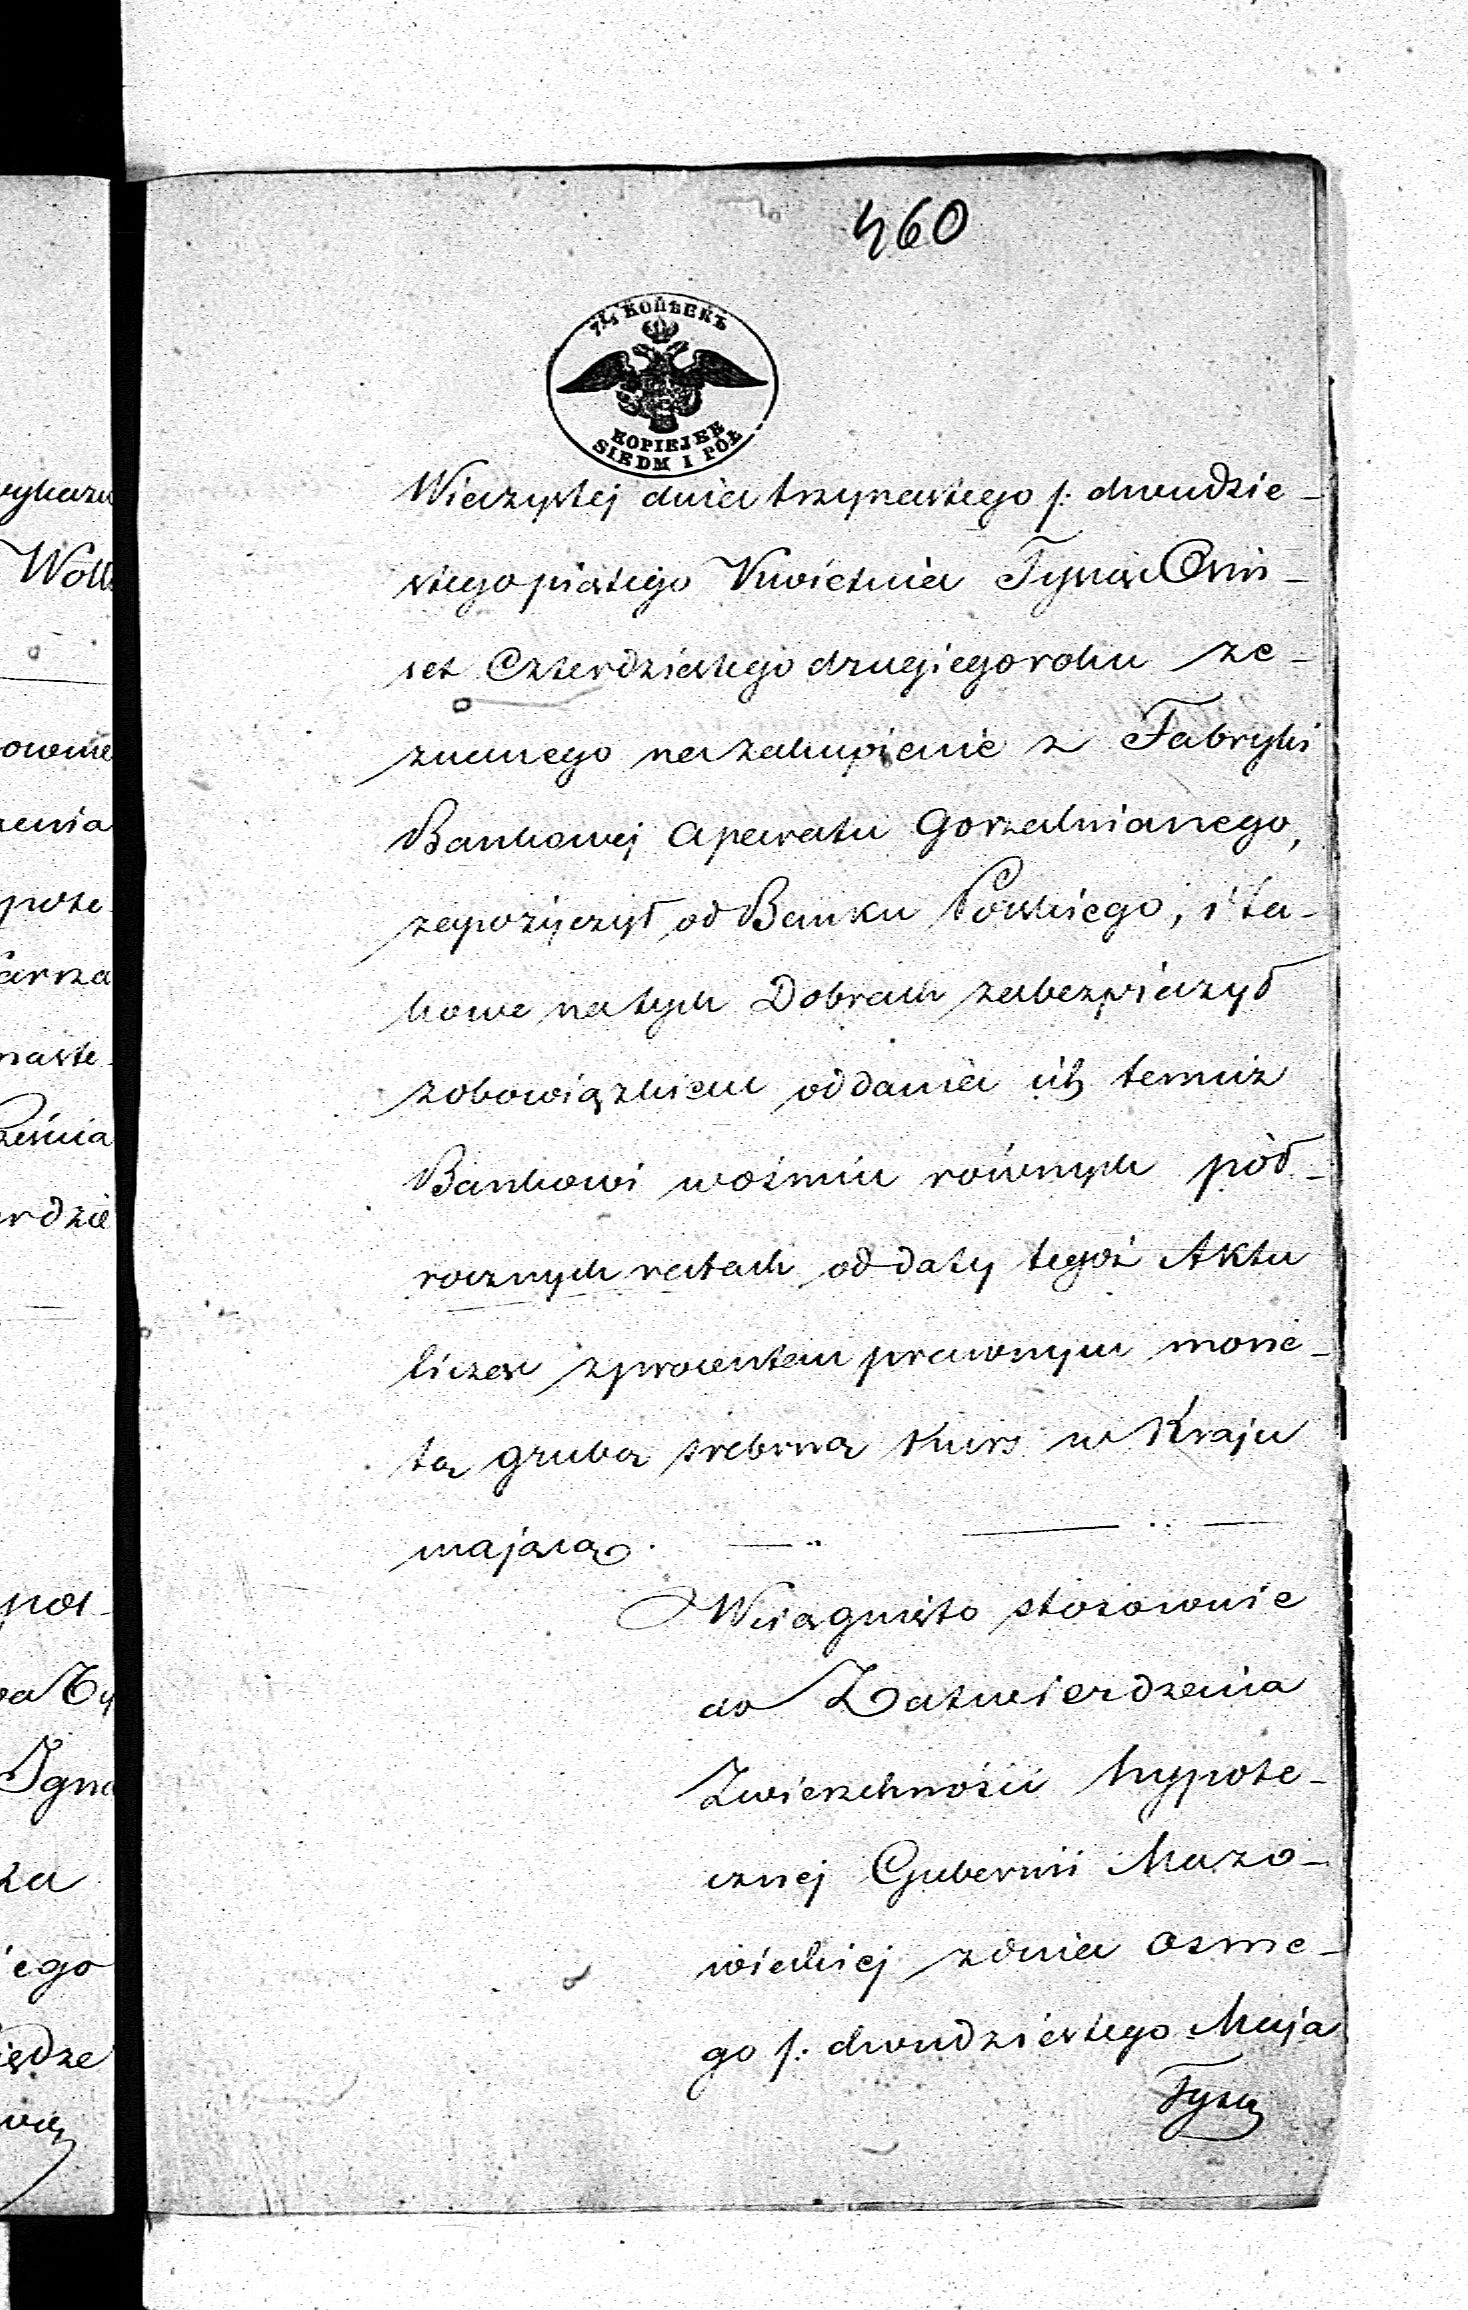 460
7½ КОПѢЕКЪ
KOPIEJEK
SIEDM I PÓŁ
Wieczystej dnia trzynastego /: dwudzie-
stego piątego Kwietnia Tysiąc Ośm-
set Czterdziestego drugiego roku ze-
znanego na zakupienie z Fabryki
Bankowej Aparatu Gorzalnianego,
zapożyczył od Banku Polskiego, i ta-
kowe na tych Dobrach zabezpieczył
z obowiązkiem oddania ich temuż
Bankowi w ośmiu równych pół-
rocznych ratach od daty tegoż Aktu
licząc z procentem prawnym mone-
tą grubą srebrną kurs w Kraju
mającą.
Wciągnięto stosownie
do Zatwierdzenia
Zwierzchności hypote-
cznej Gubernii Mazo-
wieckiej z dnia ósme-
go /: dwudziestego Maja
Tysią
wykazu
Woll
zenia
pote-
arza
naste-
rdzie
Igna
za
iego
iędze